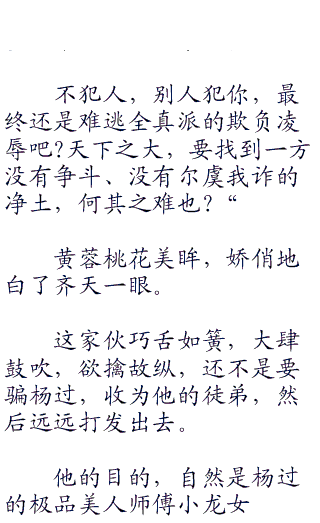 不犯人，别人犯你，最
终还是难逃全真派的欺负凌
辱吧?天下之大，要找到一方
没有争斗、没有尔虞我诈的
净土，何其之难也？“
黄蓉桃花美眸，娇俏地
白了齐天一眼。
这家伙巧舌如簧，大肆
鼓吹，欲擒故纵，还不是要
骗杨过，收为他的徒弟，然
后远远打发出去。
他的目的，自然是杨过
的极品美人师傅小龙女